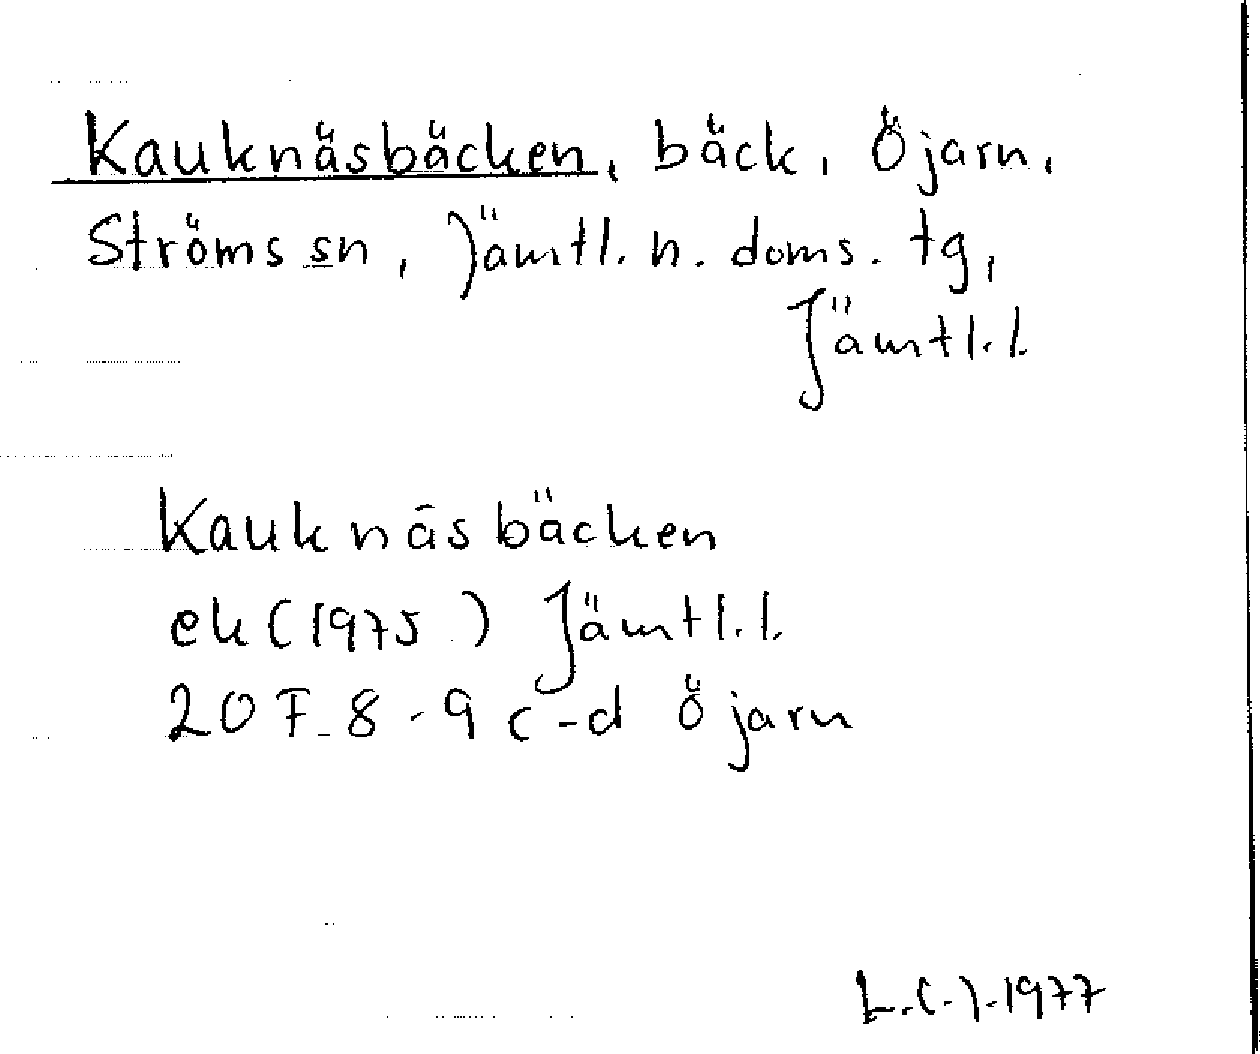 Kauknäsbäcken, bäck, Öjarn,
Ströms sn, Jämtl. n. doms. tg,
Jämtl.l.
Kauknäsbäcken
ek (1975) Jämtl.l.
20 F 8-9 c-d Öjarn
1977